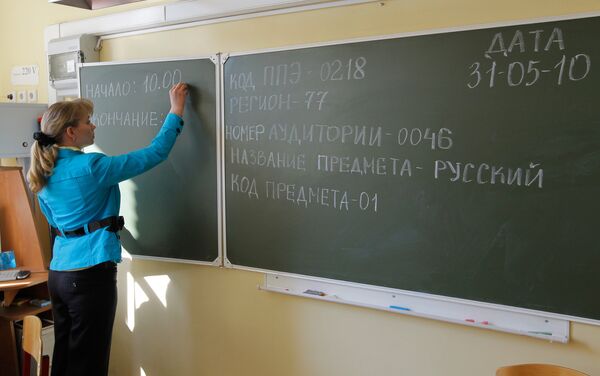 220 V
НАЧАЛО: 10.00
ОКОНЧАНИЕ:
КОД ППЭ-0218
РЕГИОН-77
НОМЕР АУДИТОРИИ-0046
НАЗВАНИЕ ПРЕДМЕТА-РУССКИЙ
КОД ПРЕДМЕТА-01
ДАТА
31-05-10